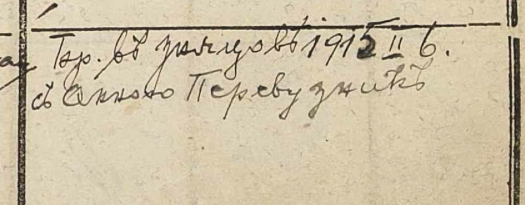 Бр. въ зняцовѣ 1915 II 6.
съ Анною Перевузникъ